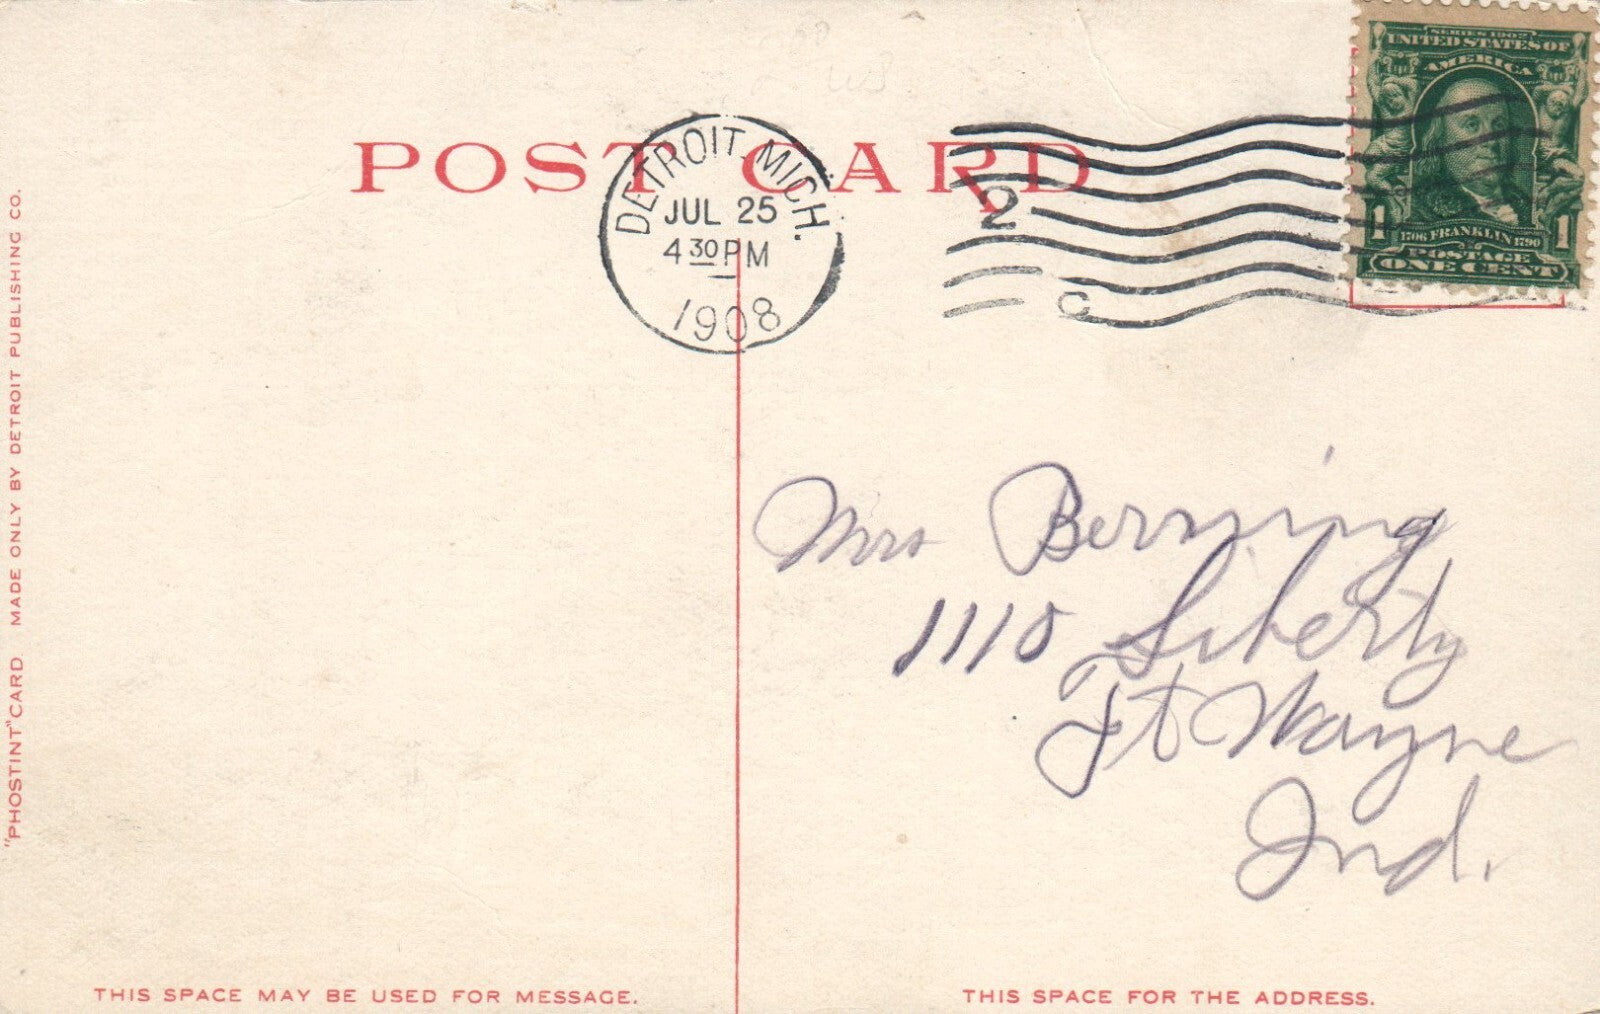 POST CARD
DETROIT, MICH.
JUL 25
4 30 PM
1908
2
C
SERIES 1902
UNITED STATES OF
AMERICA
1 1
1706 FRANKLIN 1790
POSTAGE
ONE CENT
"PHOSTINT" CARD MADE ONLY BY DETROIT PUBLISHING CO.
Mrs Berning
1110 Liberty
Ft Wayne
Ind.
THIS SPACE MAY BE USED FOR MESSAGE.
THIS SPACE FOR THE ADDRESS.